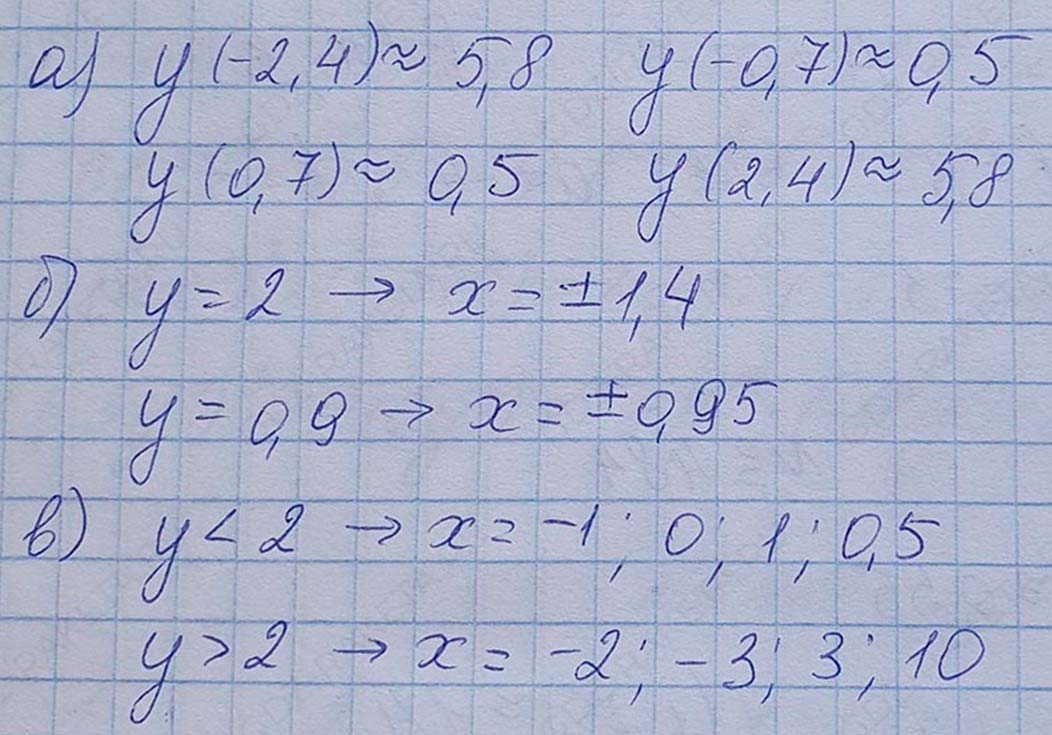 а) y(-2,4)≈ 5,8 y(-0,7)≈0,5
y(0,7)≈ 0,5 y(2,4)≈ 5,8
б) y = 2 → x = ±1,4
y = 0,9 → x = ±0,95
в) y < 2 → x = -1; 0; 1; 0,5
y > 2 → x = -2; -3; 3; 10